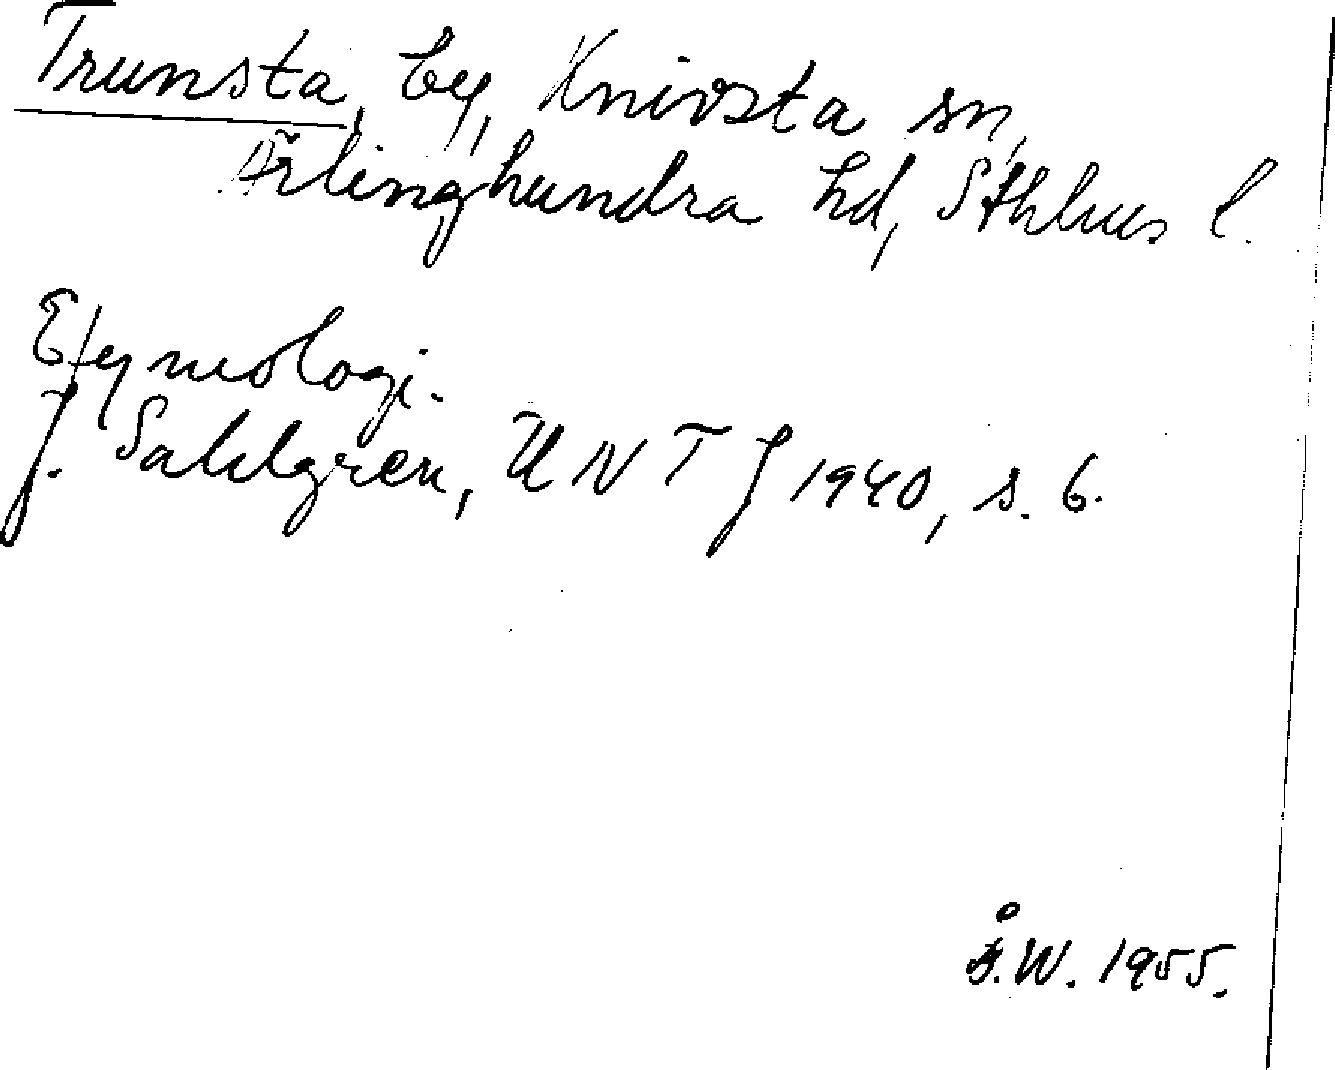 Trunsta, by, Knivsta sn,
Ärlinghundra hd, Sthlms l.
Etymologi.
J. Sahlgren, UNT J 1940, s. 6.
Å.W. 1955.